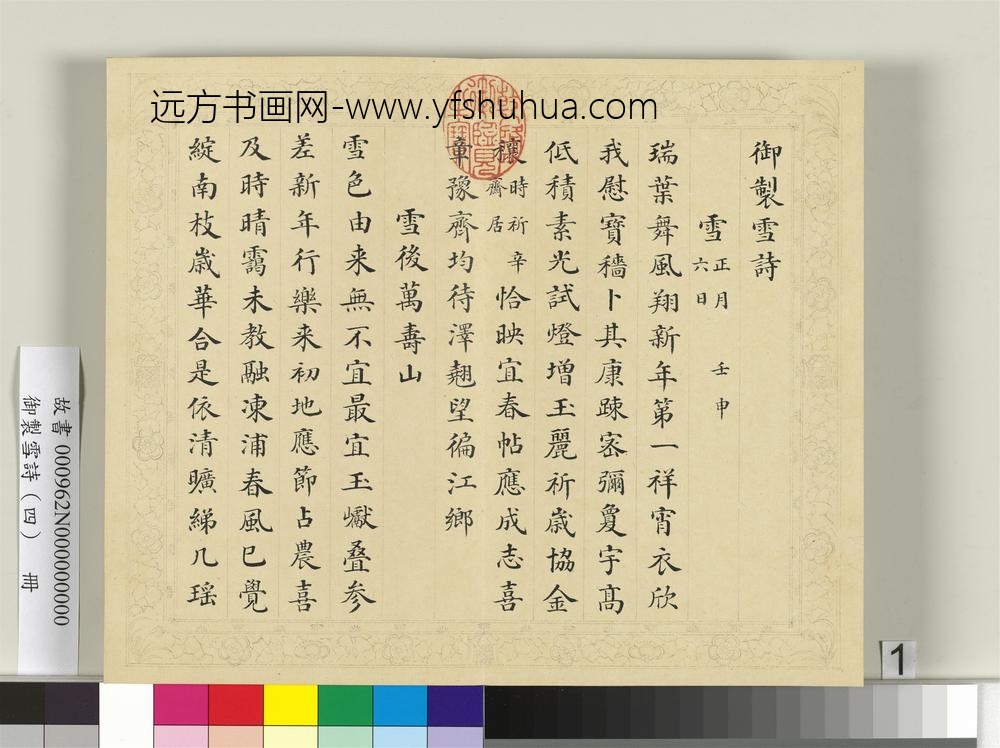 远方书画网-www.yfshuhua.com
御製雪詩
雪 正月六日 壬申
瑞葉舞風翔新年第一祥宵衣欣
我慰寶穡卜其康踈宻彌夐宇髙
低積素光試燈增玉麗祈歲協金
穰時祈辛齋居恰映宜春帖應成志喜
章豫齊均待澤翹望徧江鄉
雪後萬壽山
雪色由来無不宜最宜玉巘叠参
差新年行樂来初地應節占農喜
及時晴靄未教融凍浦春風已覺
綻南枝歲華合是依清曠綈几瑶
故書 000962N000000000
御製雪詩(四) 冊
1